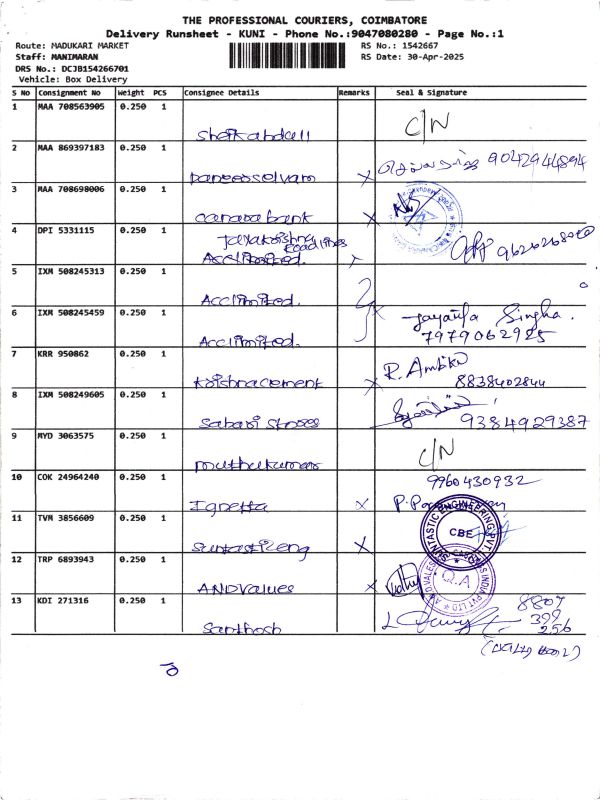 THE PROFESSIONAL COURIERS, COIMBATORE
Delivery Runsheet - KUNI - Phone No.:9047080280 - Page No.:1
Route: MADUKARI MARKET
RS No.: 1542667
Staff: MANIMARAN
RS Date: 30-Apr-2025
DRS No.: DCJB154266701
Vehicle: Box Delivery
S No Consignment No Weight PCS Consignee Details Remarks Seal & Signature
1 MAA 708563905 0.250 1
Sheikabdull C/N
2 MAA 869397183 0.250 1
Panneerselvam x 9042944894
3 MAA 708698006 0.250 1
canara bank x
4 DPI 5331115 0.250 1
Jayakrishna Roadlines
Acclimited. x
5 IXM 508245313 0.250 1
Acclimited.
6 IXM 508245459 0.250 1
Jayanta Singha.
Acclimited. x 7979062925
7 KRR 950862 0.250 1
R. Ambika
Krishnacement x 8838402844
8 IXM 508249605 0.250 1
Sabari Stores 9384929387
9 MYD 3063575 0.250 1
muthukumar C/N
10 COK 24964240 0.250 1 9960430932
Ignetta x
11 TVM 3856609 0.250 1
SUNTASTIC ENGINEERING PVT LTD
CBE
Suntastic eng x
12 TRP 6893943 0.250 1
Q.A
ANDValues x
13 KDI 271316 0.250 1 8807
399
Santhosh 256